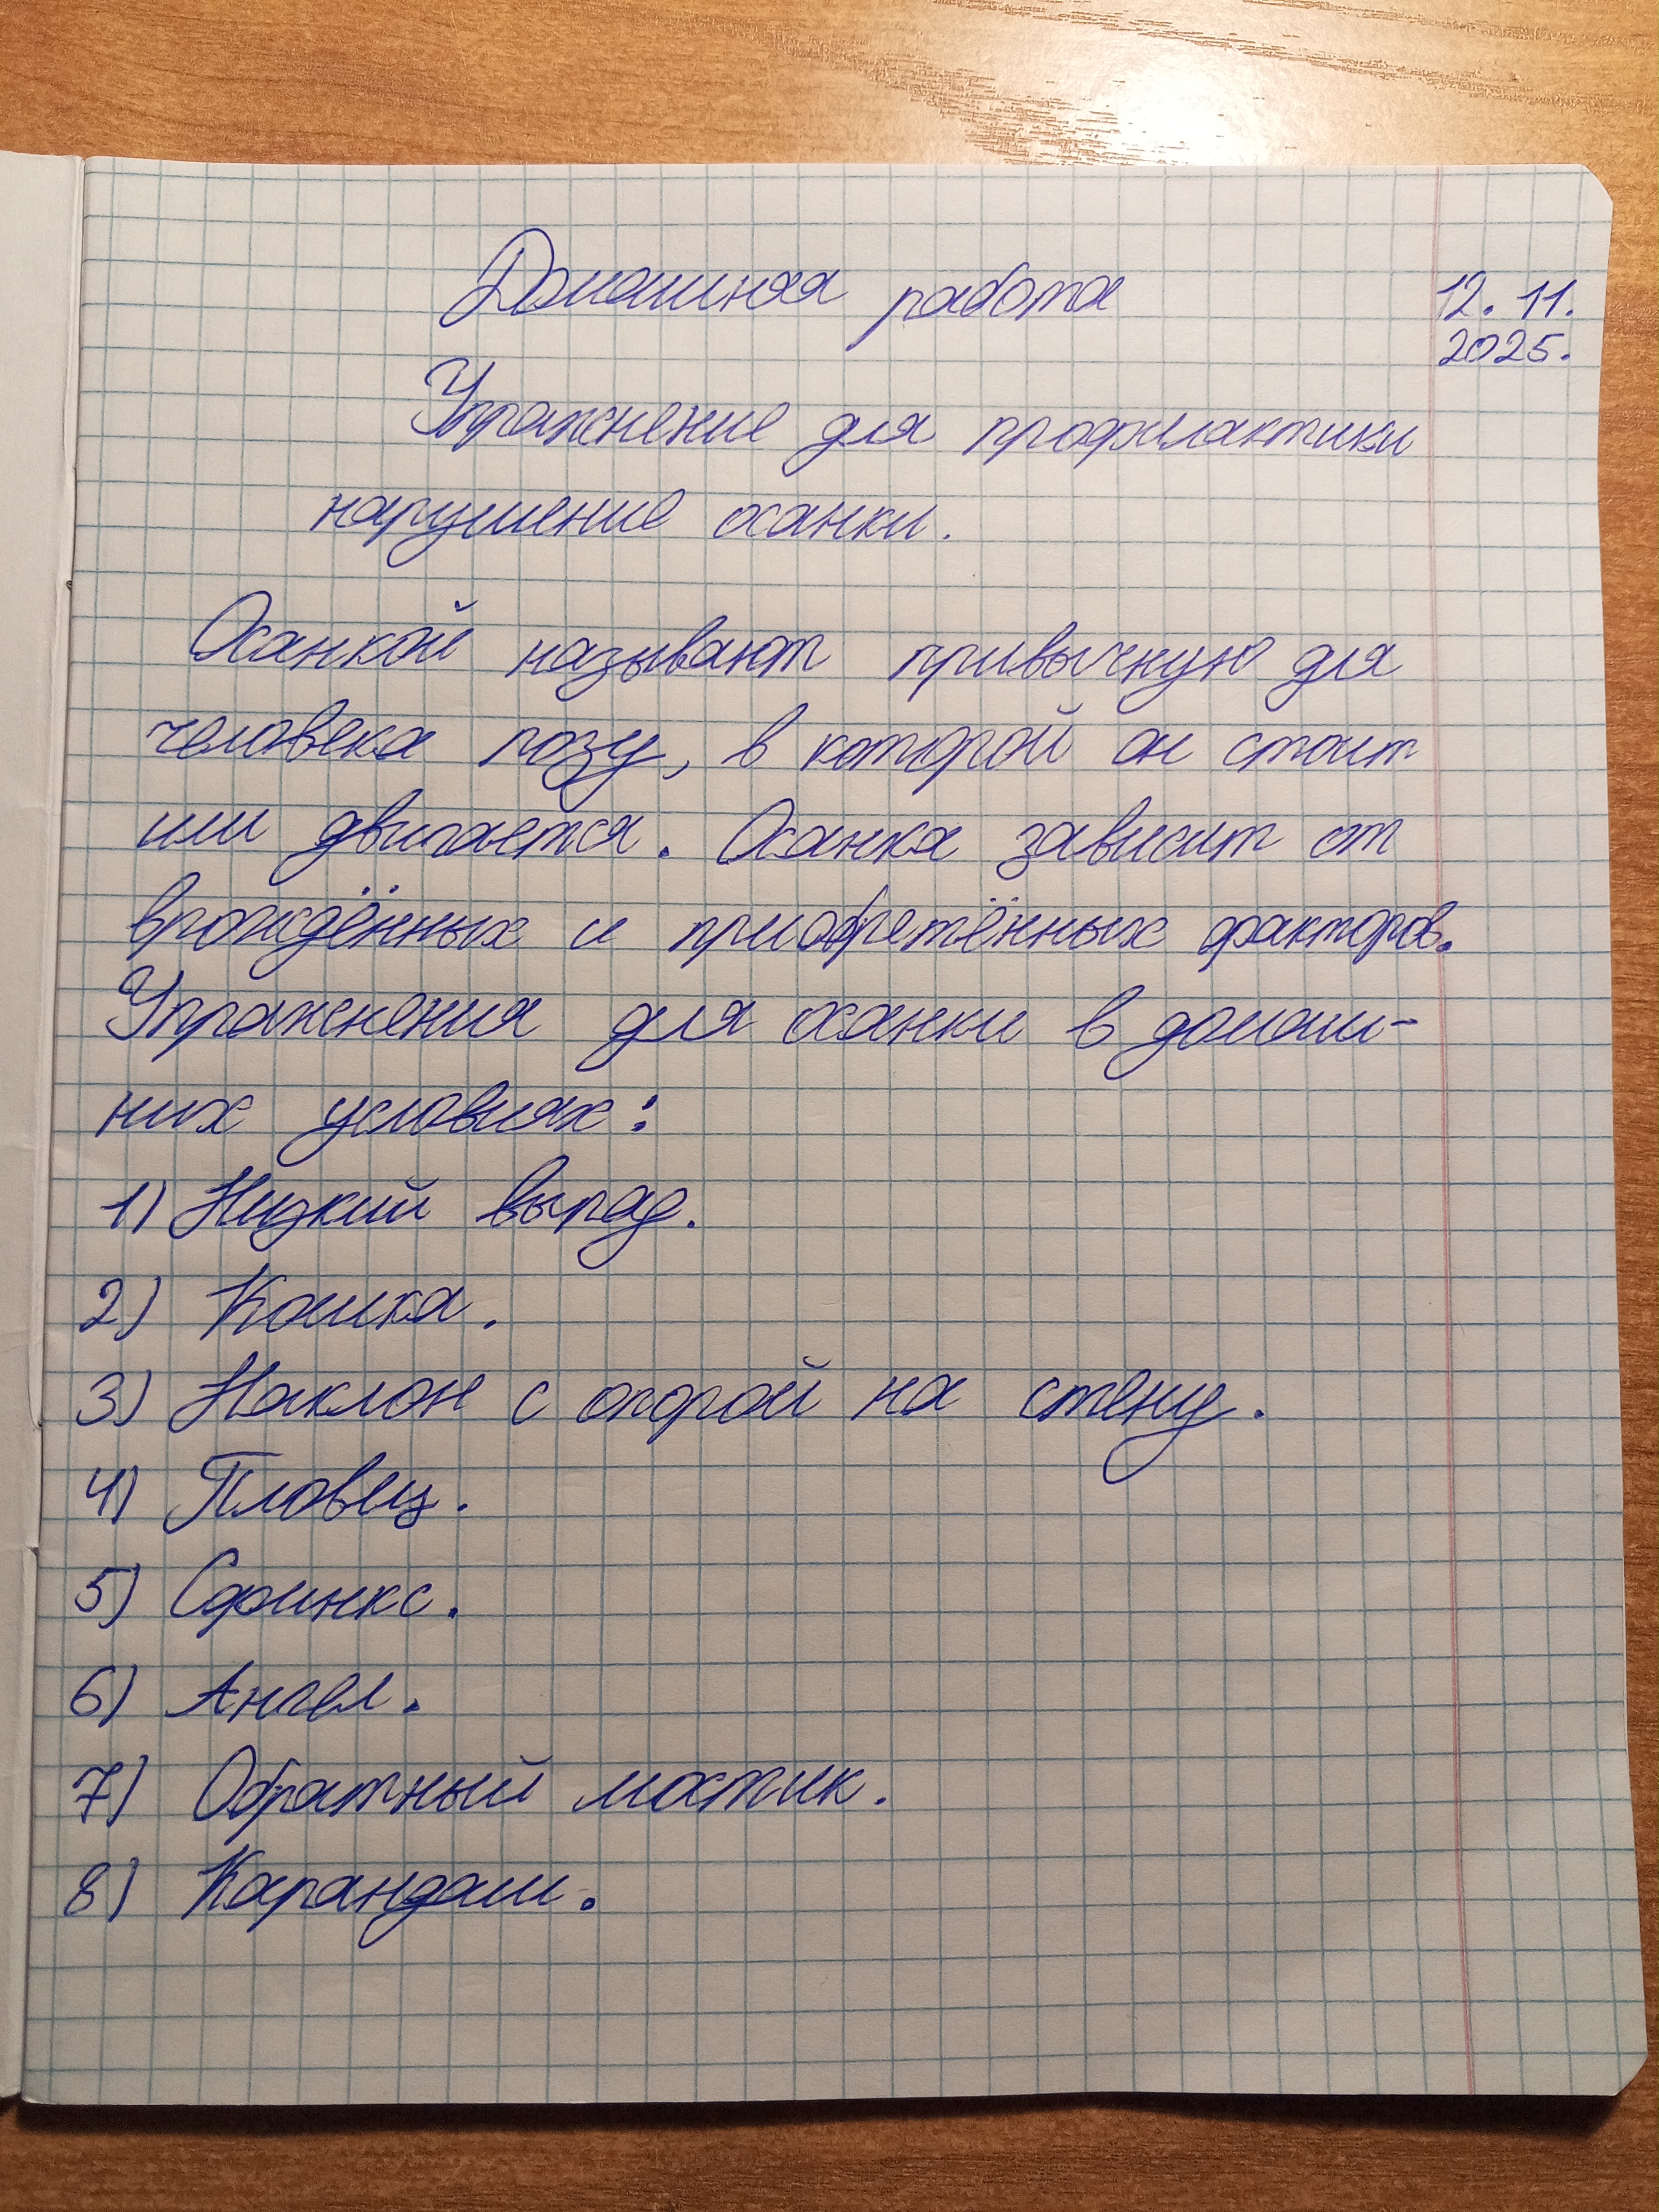 Домашняя работа 12.11.
2025.
Упражнение для профилактики
нарушение осанки.
Осанкой называют привычную для
человека позу, в которой он стоит
или двигается. Осанка зависит от
врождённых и приобретённых факторов.
Упражнения для осанки в домаш-
них условиях:
1) Низкий выпад.
2) Кошка.
3) Наклон с опорой на стену.
4) Пловец.
5) Сфинкс.
6) Ангел.
7) Обратный мостик.
8) Карандаш.